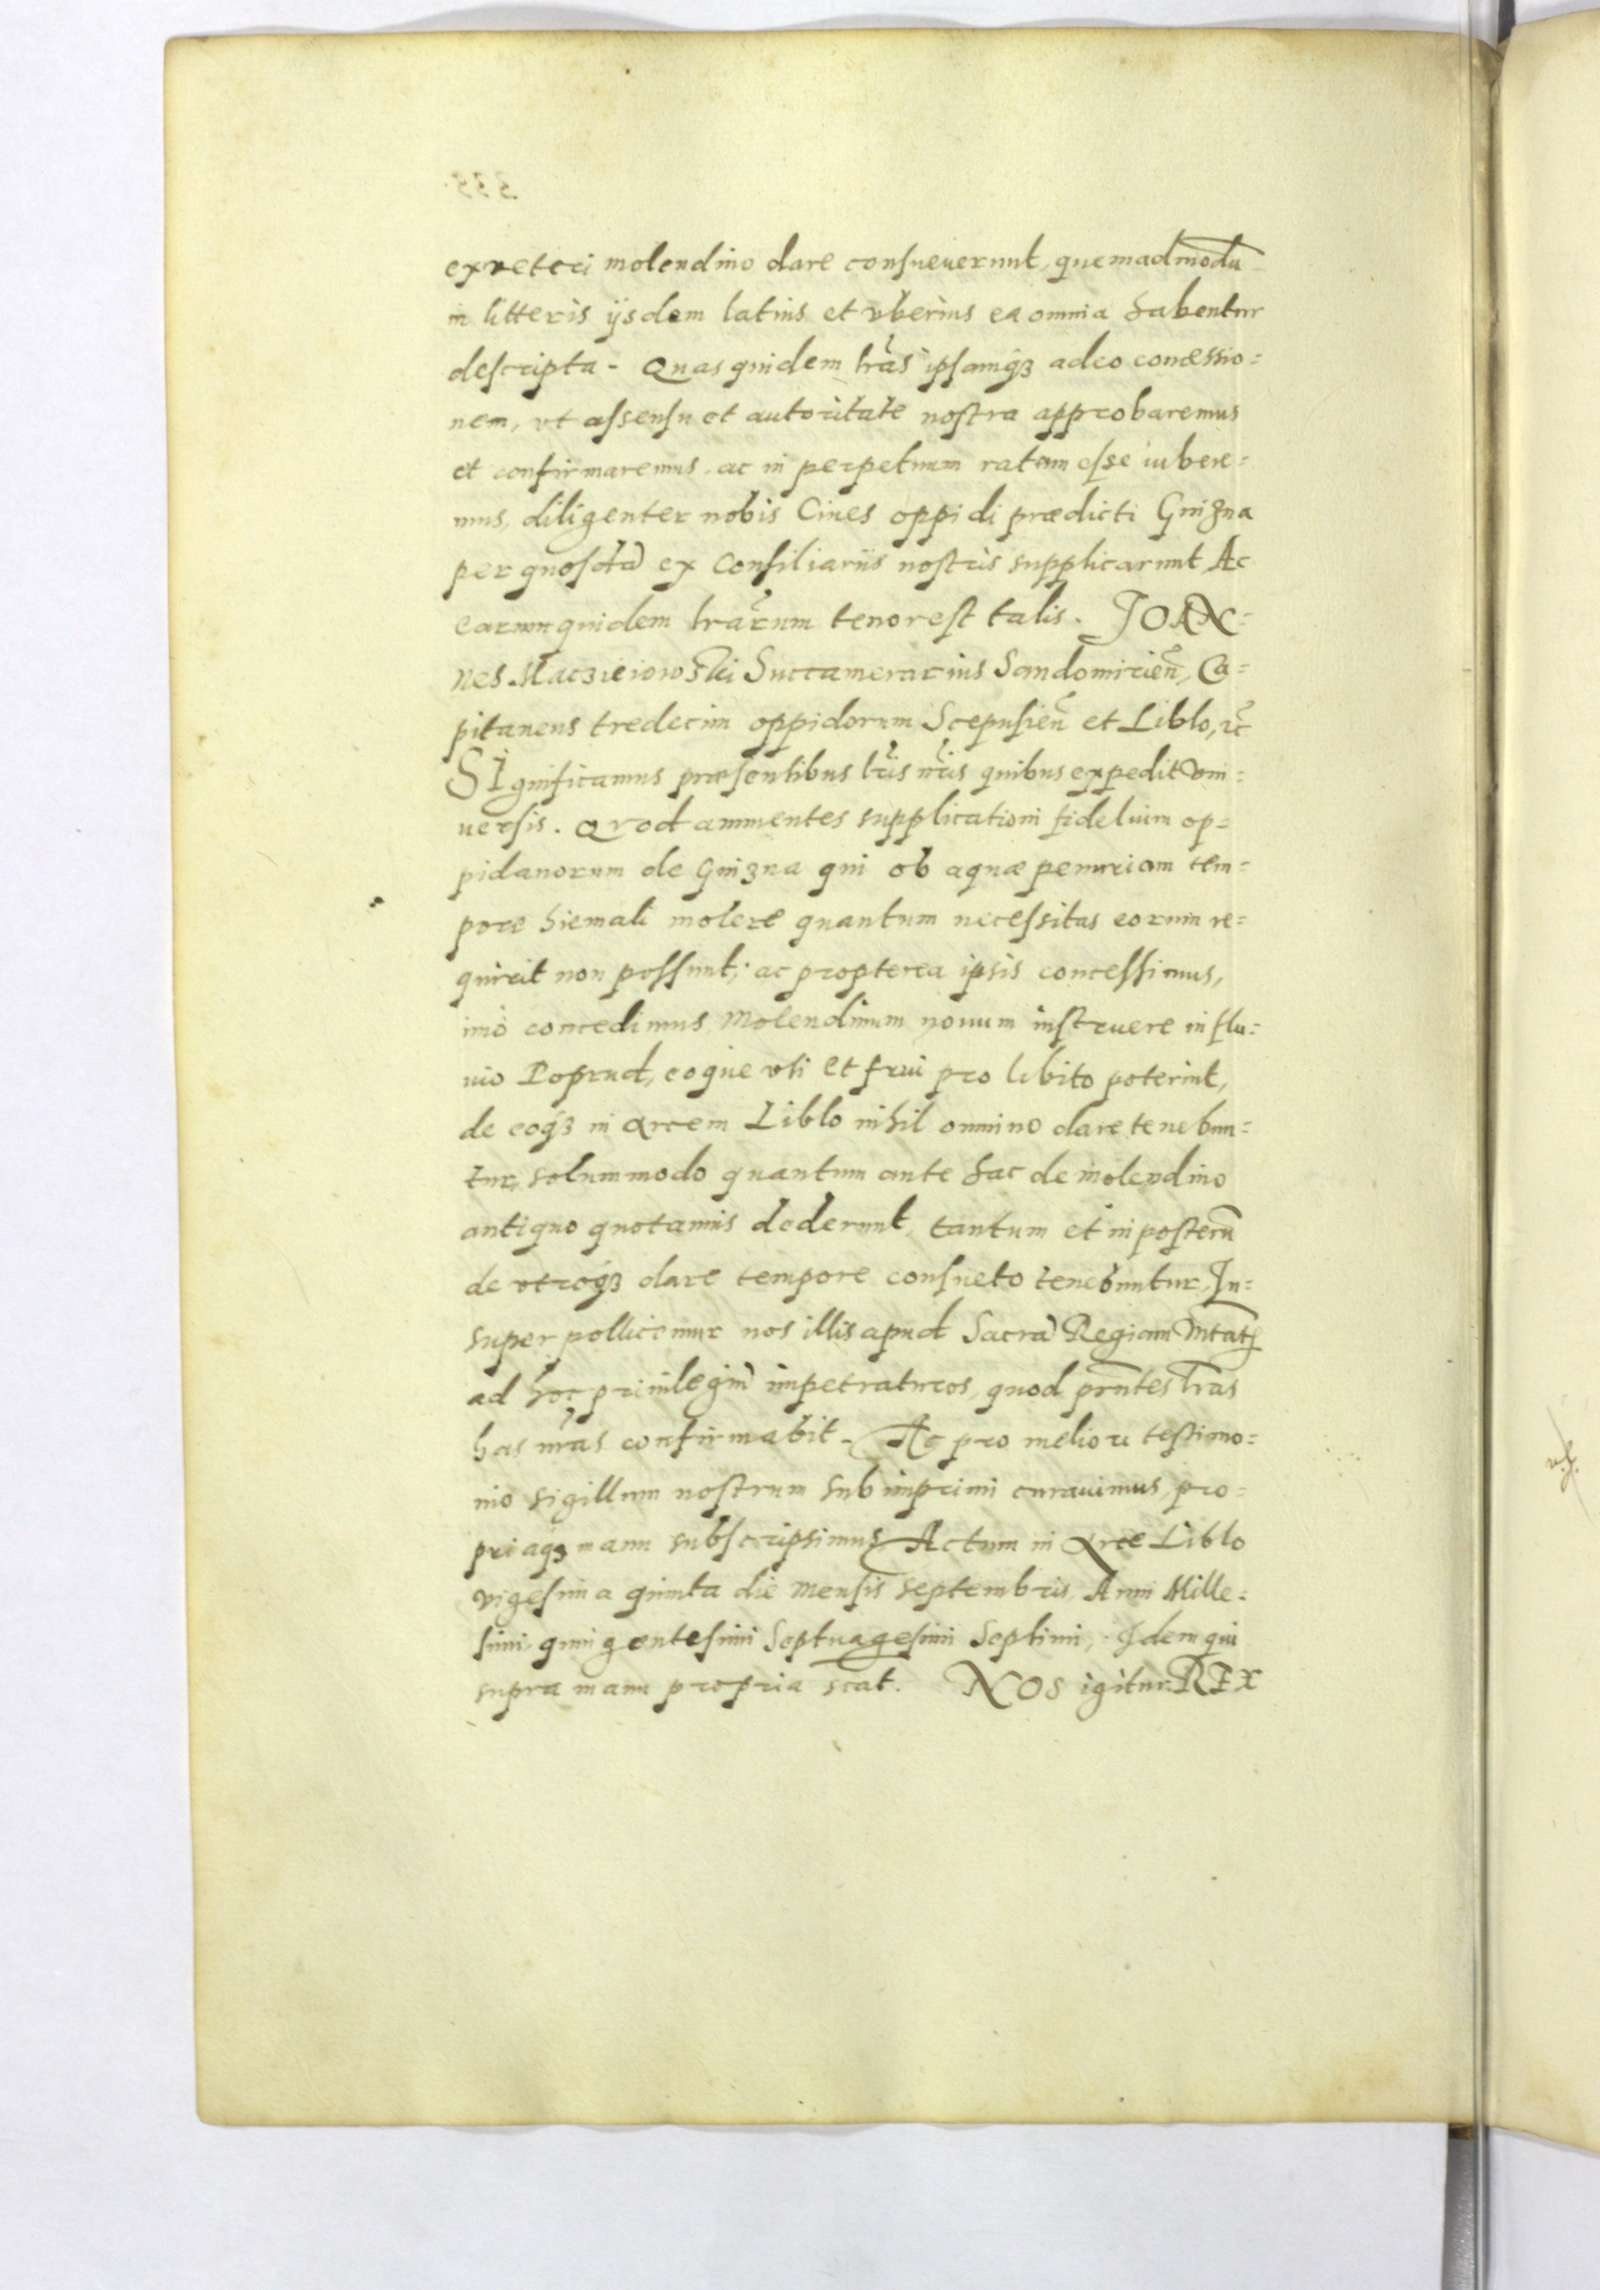 ex veteri molendino dare consueuerunt, quemadmodū
in litteris ijsdem latius et vberius ea omnia habentur
descripta. Quas quidem lrãs ipsamqꝫ adeo concessio=
nem, vt assensu et autoritate nostra approbaremus
et confirmaremus, ac in perpetuum ratam esse iubere=
mus, diligenter nobis Ciues oppidi prædicti Gnizna
per quosdã ex Consiliariis nostris supplicarunt, Ac
earum quidem lrãrum tenor est talis. JOAN=
nes Maczieiowski Succamerarius Sandomirieñ, Ca=
pitaneus tredecim oppidorum Scepusieñ et Liblo, ꝛc̃
SIgnificamus præsentibus lr̃is nr̃is quibus expedit vni=
uersis. Qvod annuentes supplicationi fidelium op=
pidanorum de Gnizna qui ob aquæ penuriam tem=
pore hiemali molere quantum necessitas eorum re=
quirit non possunt; ac propterea ipsis concessimus,
imò concedimus Molendinum nouum instruere in flu=
uio Poprud, eoque vti et frui pro libito poterint,
de eoqꝫ in Arcem Liblo nihil omnino dare tenebun=
tur, solummodo quantum ante hac de molendino
antiquo quotannis dederunt, tantum et in posterũ
de vtroqꝫ dare tempore consueto tenebuntur. In=
super pollicemur nos illis apud Sacrã Regiam Mtatẽ
ad hoc priuilegiũ impetraturos, quod prñtes lrãs
has nrãs confirmabit. Ac pro meliori testimo=
nio sigillum nostrum subimprimi curauimus, pro=
priaqꝫ manu subscripsimus. Actum in Arce Liblo
vigesima quinta die mensis Septembris, Anni Mille=
simi quingentesimi Septuagesimi Septimi, Idem qui
supra manu propria scat. NOS igitur REX